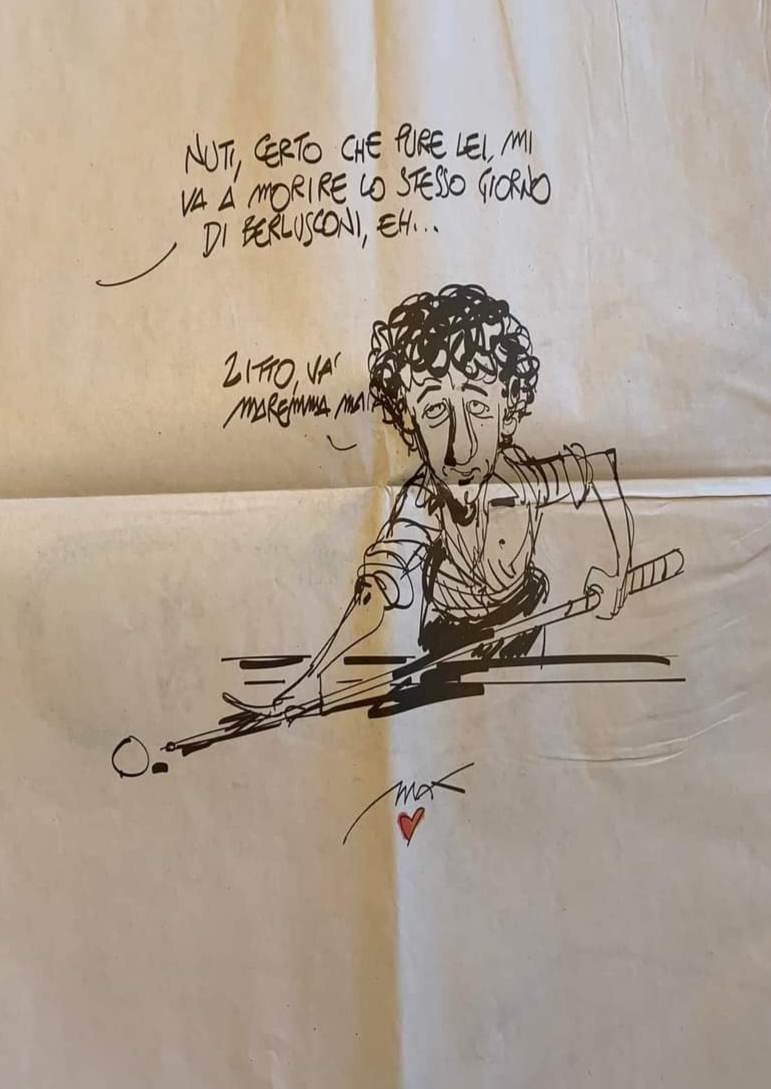 NUTI, CERTO CHE PURE LEI, MI
VA A MORIRE LO STESSO GIORNO
DI BERLUSCONI, EH...
ZITTO, VA'
MAREMMA
MAX